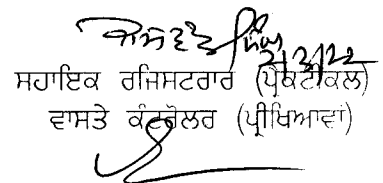 ਜਸਵੰਤ ਸਿੰਘ
2/3/22
ਸਹਾਇਕ ਰਜਿਸਟਰਾਰ (ਪ੍ਰੈਕਟੀਕਲ)
ਵਾਸਤੇ ਕੰਟਰੋਲਰ (ਪ੍ਰੀਖਿਆਵਾਂ)